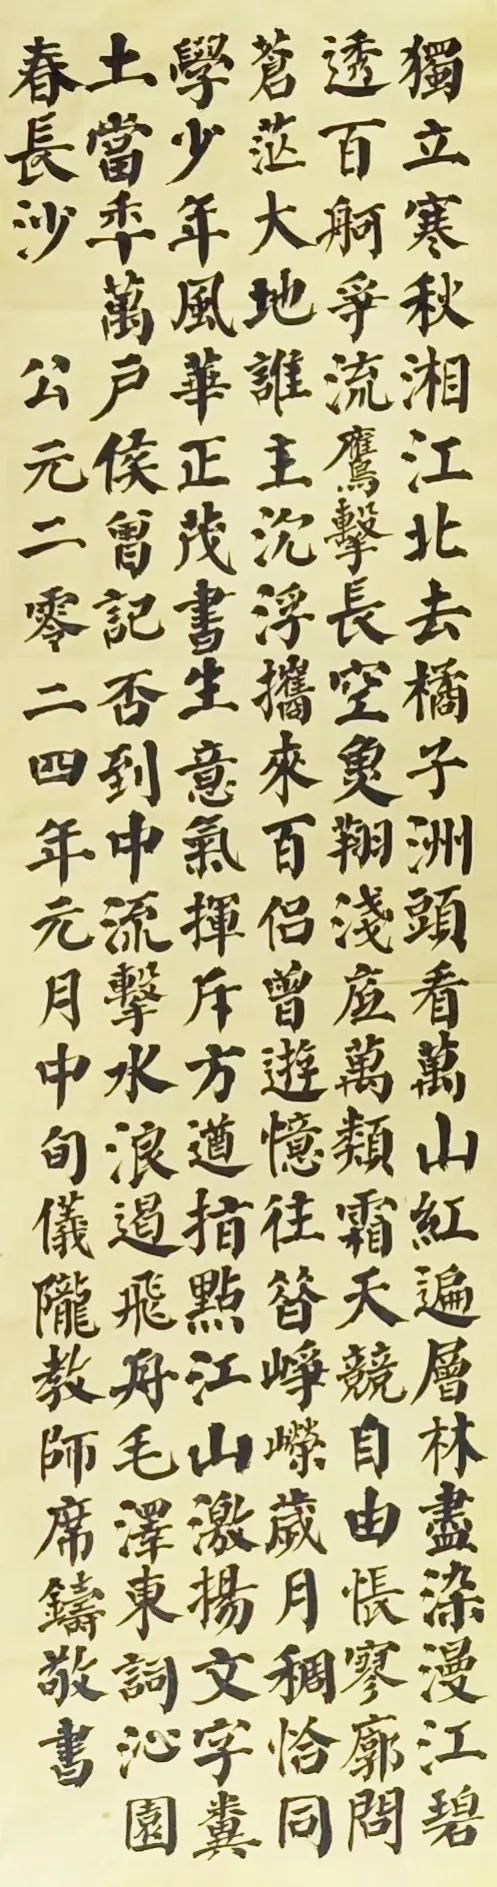 獨立寒秋湘江北去橘子洲頭看萬山紅遍層林盡染漫江碧
透百舸爭流鷹擊長空魚翔淺底萬類霜天競自由悵寥廓問
蒼茫大地誰主沉浮攜來百侶曾遊憶往昔崢嶸歲月稠恰同
學少年風華正茂書生意氣揮斥方遒指點江山激揚文字糞
土當秊萬戶侯曾記否到中流擊水浪遏飛舟毛澤東詞沁園
春長沙 公元二零二四年元月中旬儀隴教師席鑄敬書